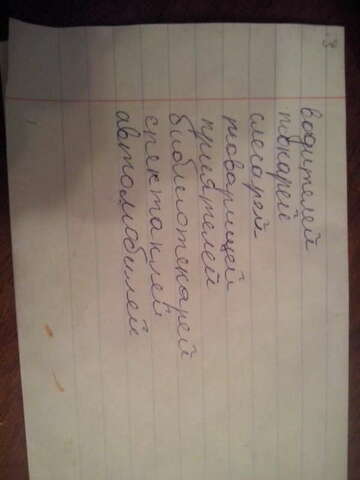 3
водителей
токарей
слесарей
товарищей
приятелей
библиотекарей
спектаклей
автомобилей